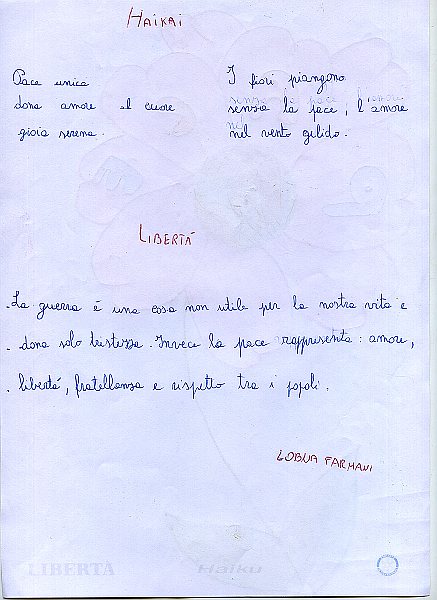 HAIKAI
Pace unica
dona amore al cuore
gioia serena.
I fiori piangono
senza la pace, l'amore
nel vento gelido.
LIBERTÁ
La guerra é una cosa non utile per la nostra vita e
dona solo tristezza. Invece la pace rappresenta: amore,
libertá, fratellanza e rispetto tra i popoli.
LOBNA FARMANI
LIBERTÀ
Haiku